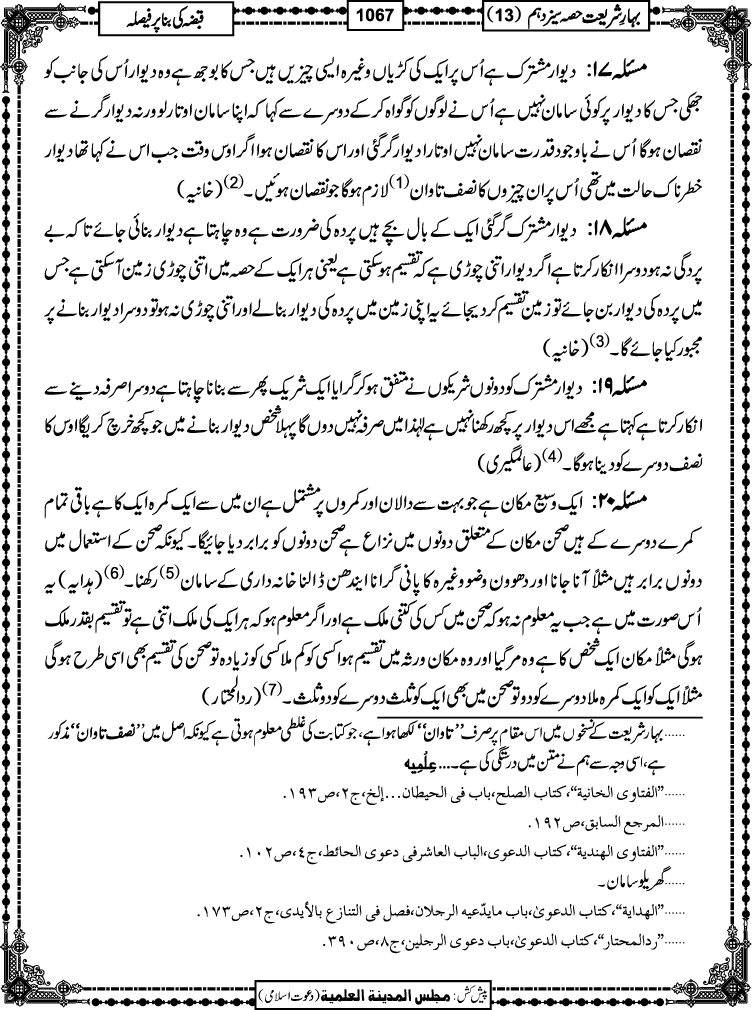 بہارِ شریعت حصہ سیزدہم (13)
1067
قبضہ کی بنا پر فیصلہ
مسئلہ ۱۷: دیوار مشترک ہے اُس پر ایک کی کڑیاں وغیرہ ایسی چیزیں ہیں جس کا بوجھ ہے وہ دیوار اُس کی جانب کو
جھکی جس کا دیوار پر کوئی سامان نہیں ہے اُس نے لوگوں کو گواہ کر کے دوسرے سے کہا کہ اپنا سامان اوتار لو ورنہ دیوار گرنے سے
نقصان ہوگا اُس نے باوجود قدرت سامان نہیں اوتارا دیوار گرگئی اور اس کا نقصان ہوا اگر اوس وقت جب اس نے کہا تھا دیوار
خطرناک حالت میں تھی اُس پر ان چیزوں کا نصف تاوان(1) لازم ہوگا جو نقصان ہوئیں۔(2) (خانیہ)
مسئلہ ۱۸: دیوار مشترک گرگئی ایک کے بال بچے ہیں پردہ کی ضرورت ہے وہ چاہتا ہے دیوار بنائی جائے تاکہ بے
پردگی نہ ہو دوسرا انکار کرتا ہے اگر دیوار اتنی چوڑی ہے کہ تقسیم ہوسکتی ہے یعنی ہر ایک کے حصہ میں اتنی چوڑی زمین آسکتی ہے جس
میں پردہ کی دیوار بن جائے تو زمین تقسیم کردیجائے یہ اپنی زمین میں پردہ کی دیوار بنالے اور اتنی چوڑی نہ ہو تو دوسرا دیوار بنانے پر
مجبور کیا جائے گا۔(3) (خانیہ)
مسئلہ ۱۹: دیوار مشترک کو دونوں شریکوں نے متفق ہوکر گرایا ایک شریک پھر سے بنانا چاہتا ہے دوسرا صرفہ دینے سے
انکار کرتا ہے کہتا ہے مجھے اس دیوار پر کچھ رکھنا نہیں ہے لہٰذا میں صرفہ نہیں دوں گا پہلا شخص دیوار بنانے میں جو کچھ خرچ کریگا اوس کا
نصف دوسرے کو دینا ہوگا۔(4) (عالمگیری)
مسئلہ ۲۰: ایک وسیع مکان ہے جو بہت سے دالان اور کمروں پر مشتمل ہے ان میں سے ایک کمرہ ایک کا ہے باقی تمام
کمرے دوسرے کے ہیں صحن مکان کے متعلق دونوں میں نزاع ہے صحن دونوں کو برابر دیا جائیگا۔ کیونکہ صحن کے استعمال میں
دونوں برابر ہیں مثلاً آنا جانا اور دھوون وضو وغیرہ کا پانی گرانا ایندھن ڈالنا خانہ داری کے سامان(5) رکھنا۔(6) (ہدایہ) یہ
اُس صورت میں ہے جب یہ معلوم نہ ہو کہ صحن میں کس کی کتنی ملک ہے اور اگر معلوم ہو کہ ہر ایک کی ملک اتنی ہے تو تقسیم بقدر ملک
ہوگی مثلاً مکان ایک شخص کا ہے وہ مرگیا اور وہ مکان ورثہ میں تقسیم ہوا کسی کو کم ملا کسی کو زیادہ تو صحن کی تقسیم بھی اسی طرح ہوگی
مثلاً ایک کو ایک کمرہ ملا دوسرے کو دو تو صحن میں بھی ایک کو ثلث دوسرے کو دو ثلث۔(7) (ردالمحتار)
......بہار شریعت کے نسخوں میں اس مقام پر صرف ”تاوان“ لکھا ہوا ہے، جو کتابت کی غلطی معلوم ہوتی ہے کیونکہ اصل میں ”نصف تاوان“ مذکور
ہے، اسی وجہ سے ہم نے متن میں درستگی کی ہے۔... عِلْمِیه
......”الفتاوی الخانیة“، کتاب الصلح، باب فی الحیطان...إلخ، ج۲، ص۱۹۳.
......المرجع السابق، ص۱۹۲.
......”الفتاوی الهندیة“، کتاب الدعوی، الباب العاشر فی دعوی الحائط، ج٤، ص۱۰۲.
......گھریلو سامان۔
......”الهدایة“، کتاب الدعویٰ، باب مایدّعیه الرجلان، فصل فی التنازع بالأیدی، ج۲، ص۱۷۳.
......”ردالمحتار“، کتاب الدعویٰ، باب دعوی الرجلین، ج۸، ص۳۹۰.
پیش کش: مجلس المدینة العلمیة (دعوتِ اسلامی)